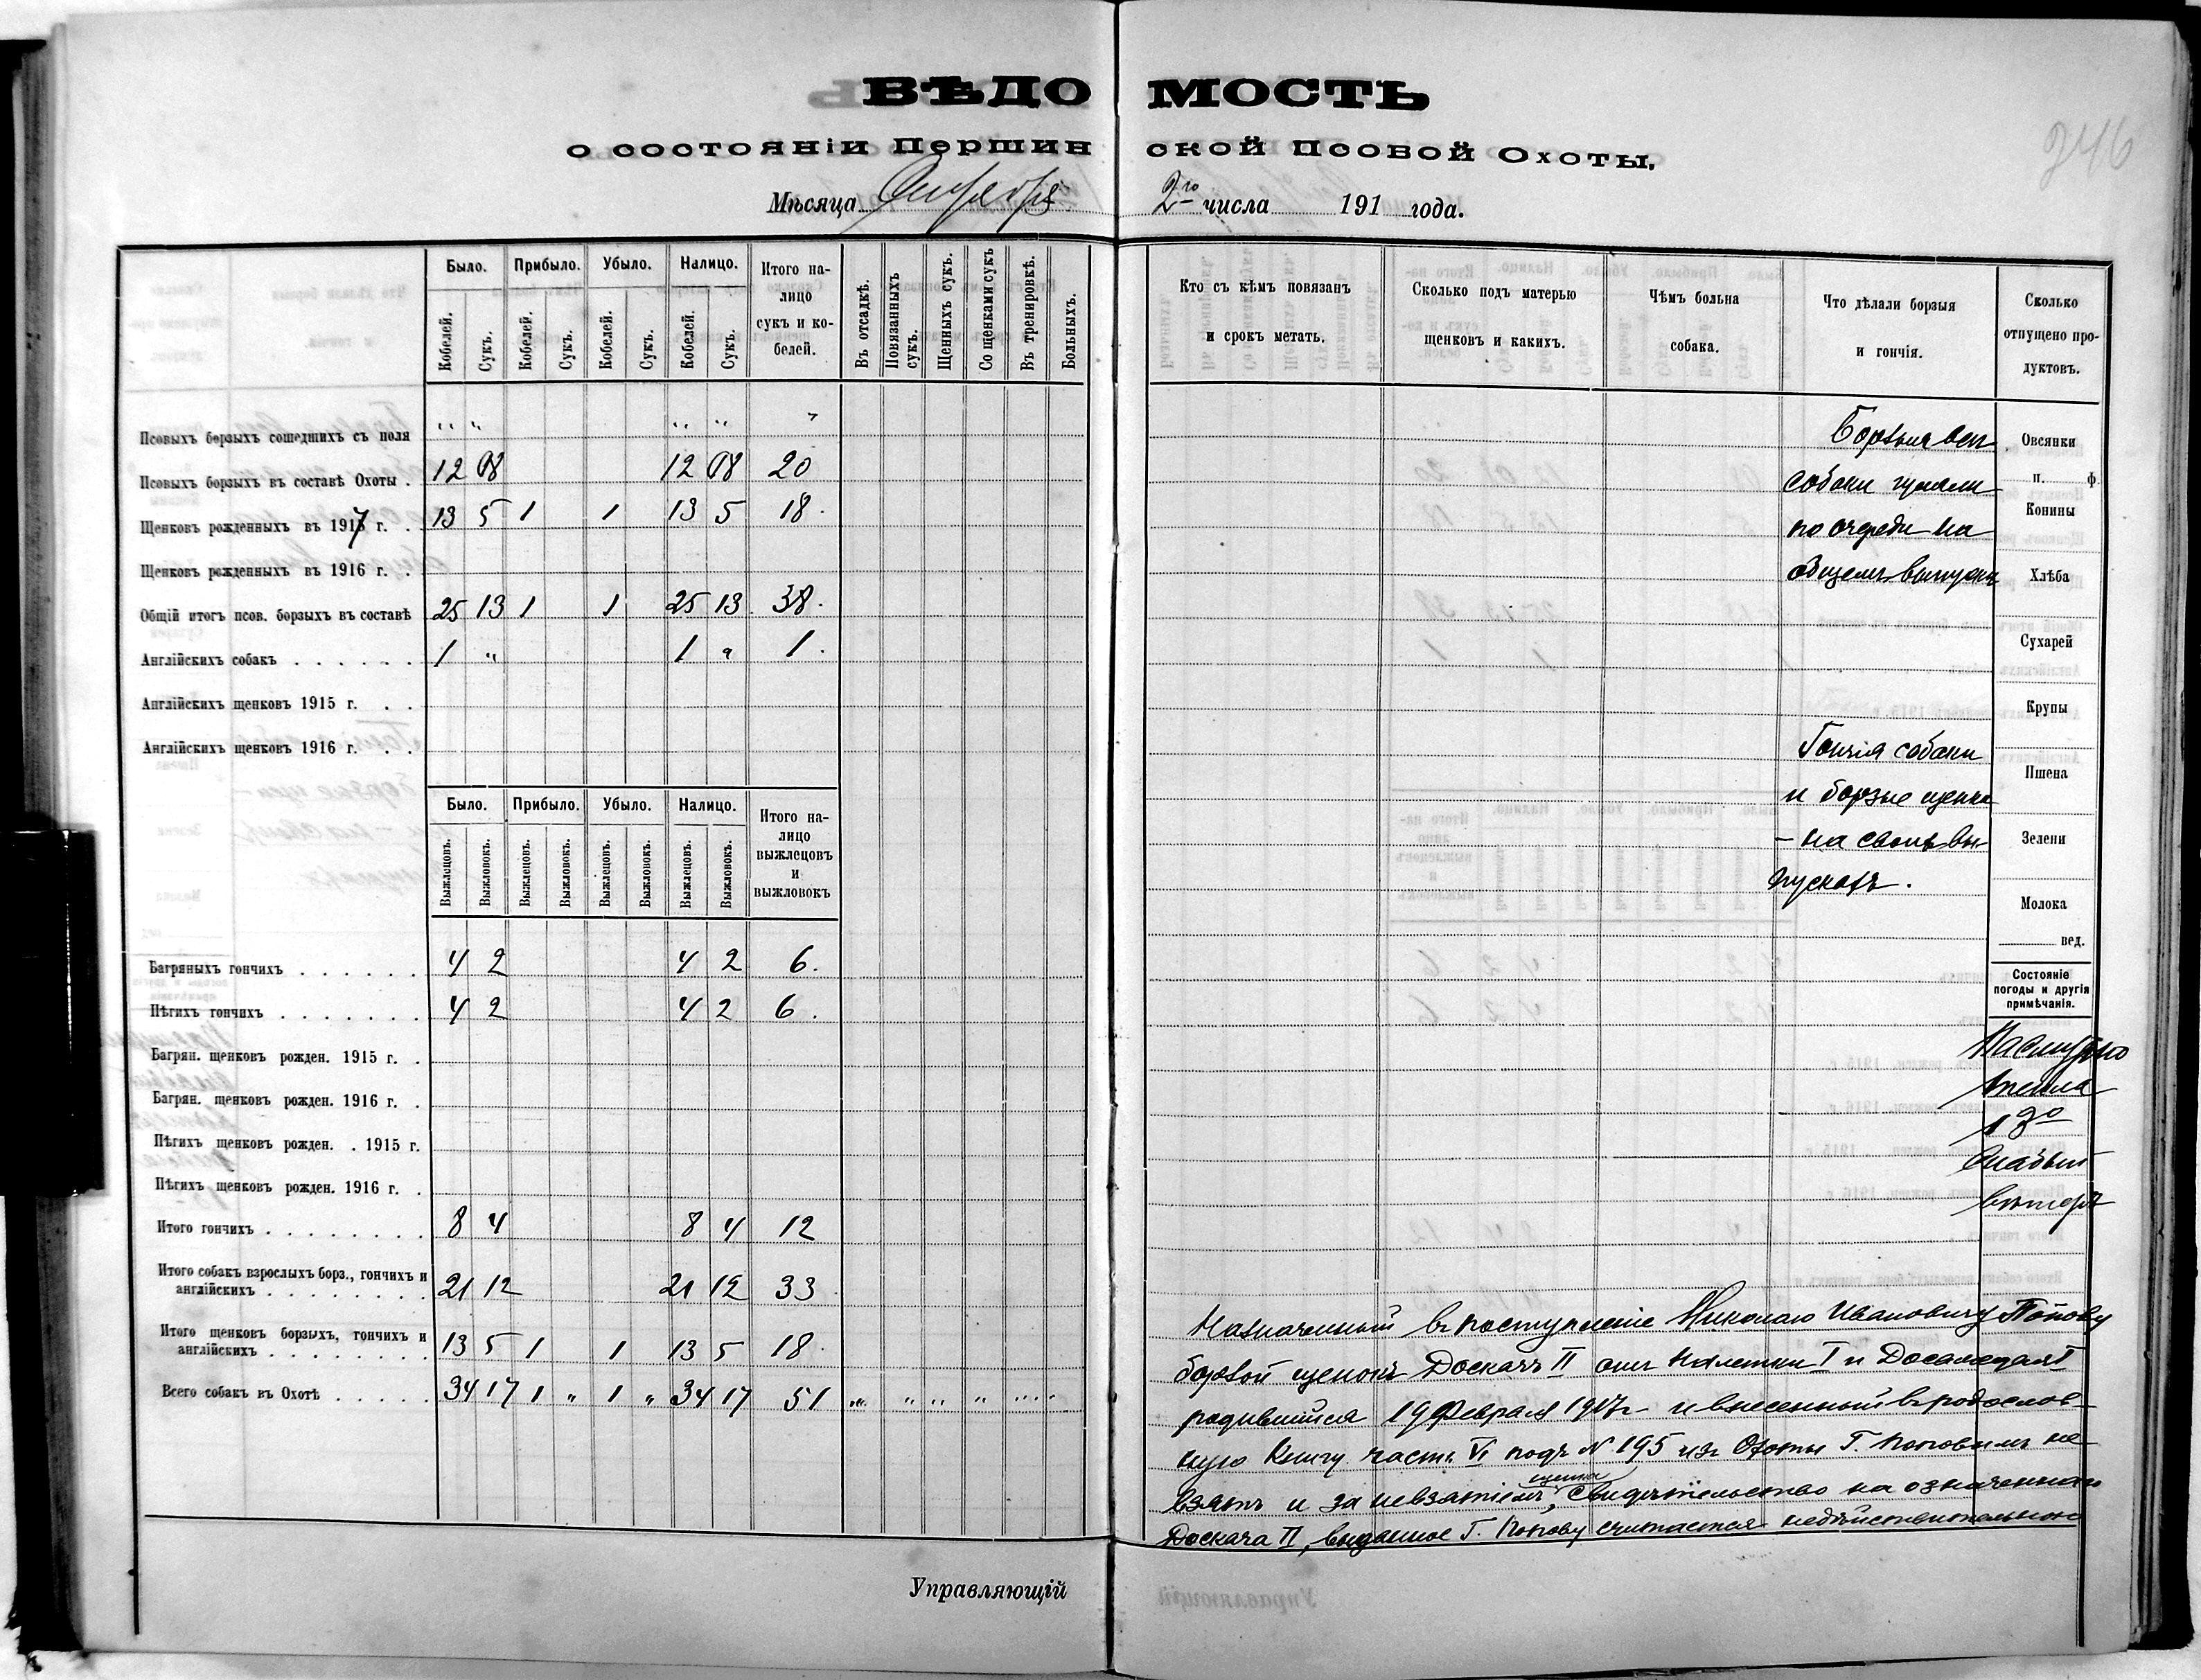 ВѢДОМОСТЬ
о состояніи Першинской Псовой Охоты.
246
Мѣсяца Октября 2го числа 191 года.
Было. Прибыло. Убыло. Налицо. Итого налицо сукъ и кобелей. Въ отсадкѣ. Повязанныхъ сукъ. Щенныхъ сукъ. Со щенками сукъ Въ тренировкѣ. Больныхъ.
Кобелей. Сукъ. Кобелей. Сукъ. Кобелей. Сукъ. Кобелей. Сукъ.
Псовыхъ борзыхъ сошедшихъ съ поля „ „ „ „ „
Псовыхъ борзыхъ въ составѣ Охоты . 12 08 12 08 20
Щенковъ рожденныхъ въ 1917 г. . 13 5 1 1 13 5 18.
Щенковъ рожденныхъ въ 1916 г. .
Общій итогъ псов. борзыхъ въ составѣ 25 13 1 1 25 13 38.
Англійскихъ собакъ . . . . . . 1 „ 1 „ 1.
Англійскихъ щенковъ 1915 г. . .
Англійскихъ щенковъ 1916 г. . .
Было. Прибыло. Убыло. Налицо. Итого налицо выжлецовъ и выжловокъ
Выжлецовъ. Выжловокъ. Выжлецовъ. Выжловокъ. Выжлецовъ. Выжловокъ. Выжлецовъ. Выжловокъ.
Багряныхъ гончихъ . . . . . . 4 2 4 2 6.
Пѣгихъ гончихъ . . . . . . . 4 2 4 2 6.
Багрян. щенковъ рожден. 1915 г. .
Багрян. щенковъ рожден. 1916 г. .
Пѣгихъ щенковъ рожден. . 1915 г.
Пѣгихъ щенковъ рожден. 1916 г. .
Итого гончихъ . . . . . . . . 8 4 8 4 12
Итого собакъ взрослыхъ борз., гончихъ и
англійскихъ . . . . . . . . 21 12 21 12 33
Итого щенковъ борзыхъ, гончихъ и
англійскихъ . . . . . . . . 13 5 1 1 13 5 18.
Всего собакъ въ Охотѣ . . . . . 34 17 1 „ 1 „ 34 17 51 „ „ „ „ „ „
Управляющій
Кто съ кѣмъ повязанъ
и срокъ метать.
Сколько подъ матерью
щенковъ и какихъ.
Чѣмъ больна
собака.
Что дѣлали борзыя
и гончія.
Сколько
отпущено про-
дуктовъ.
Борзыя всѣ
собаки гуляли
по очереди на
общемъ выпускѣ
Гончія собаки
и борзые щенки
- на своихъ вы-
пускахъ.
Овсянки
п. ф.
Конины
Хлѣба
Сухарей
Крупы
Пшена
Зелени
Молока
вед.
Состояніе
погоды и другія
примѣчанія.
Пасмурно
тепла
13о
Слабый
вѣтеръ
Назначенный въ поступленіе Николаю Ивановичу Попову
борзой щенокъ Доскачъ II отъ Налетки I и
родившійся 19 Февраля 1917г. и внесенный въ родослов-
ную Книгу часть VI подъ № 195 изъ Охоты Г. Поповымъ не
взятъ и за невзятіемъ щенка, свидѣтельство на означеннаго
Доскача II, выданное Г. Попову считается недѣйствительнымъ